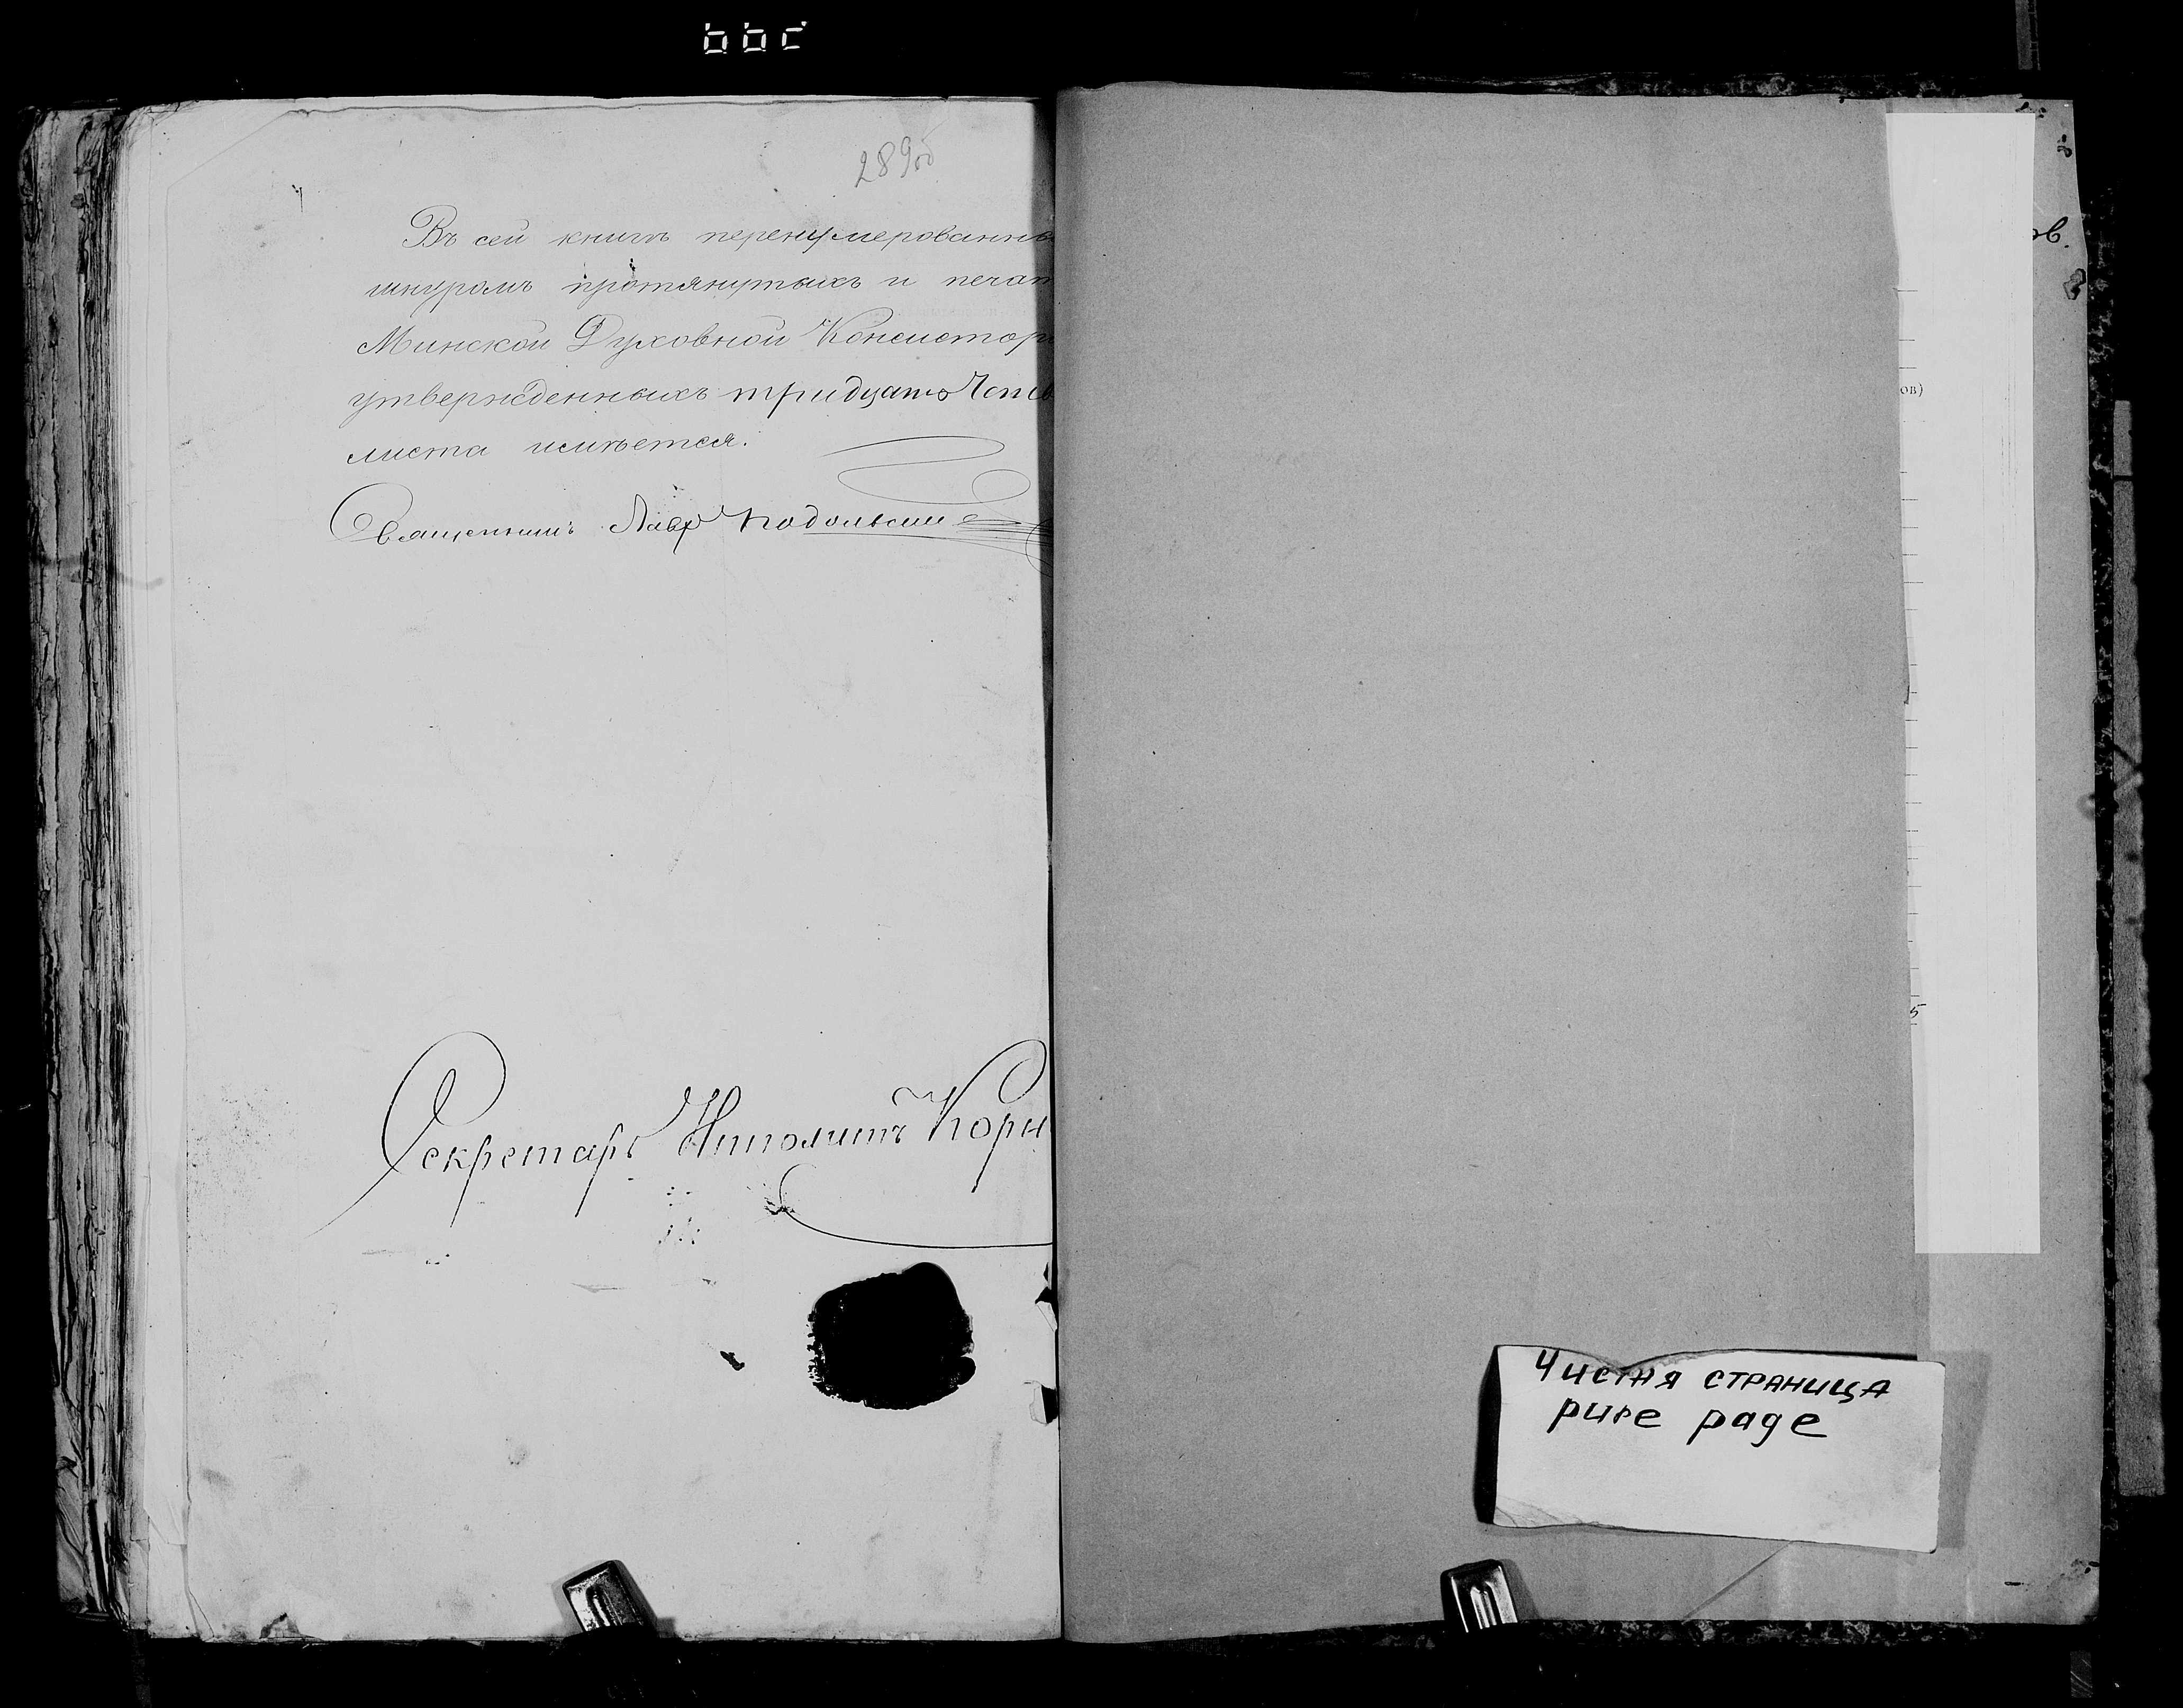 289об
Въ сей книгѣ перенумерованны
шнуромъ протянутыхъ и печат
Минской Духовной Консистор
утвержденныхъ тридцать Четв
листа имѣется.
Священникъ Лавр Подольскій
Секретарь Ипполитъ Корн
ов.
ов)
5
Чистая страница
pure page